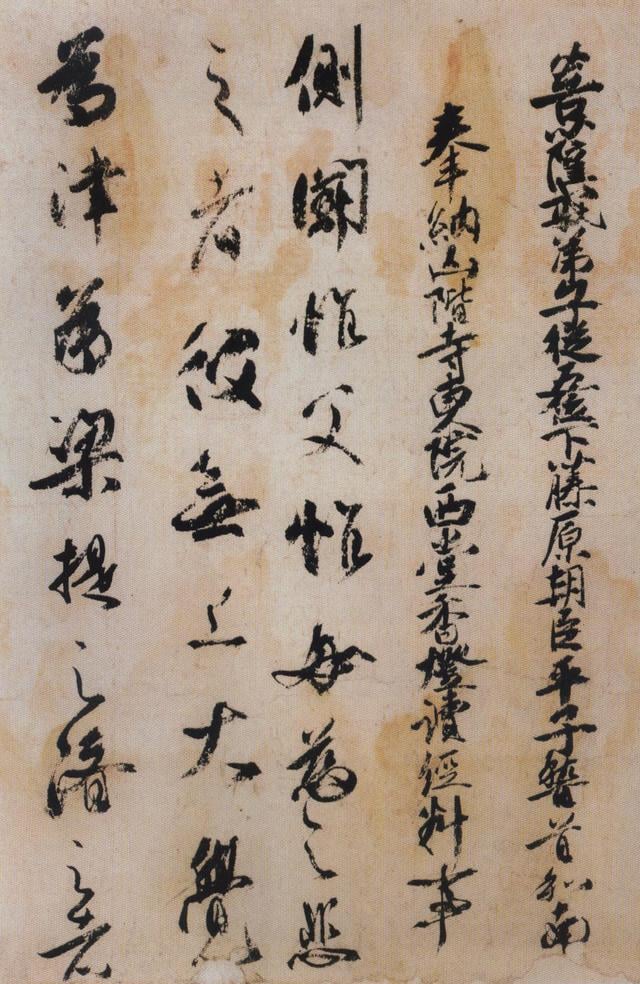 菩薩戒弟子從五位下藤原朝臣平子稽首和南
奉納山階寺東院西堂香燈讀經料事
側聞惟父惟母慈之悲
之者役無上大覺
爲津爲梁提之濟之者